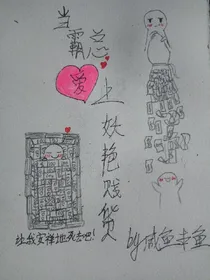 当霸总
爱上妖艳贱货
让我安祥地死去吧!
by咸鱼圭鱼